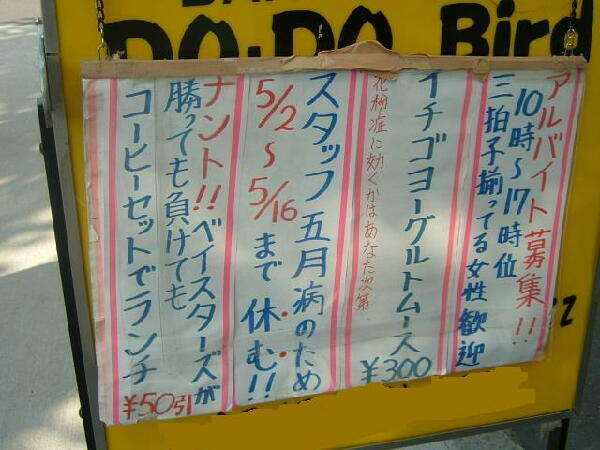 DO・DO Bird
アルバイト募集!!
10時〜17時位
三拍子揃ってる女性歓迎
イチゴヨーグルトムース ¥300
花粉症に効くかはあなた次第
スタッフ五月病のため
5/2〜5/16まで休む!!
ナント!!ベイスターズが
勝っても負けても
コーヒーセットでランチ
¥50引